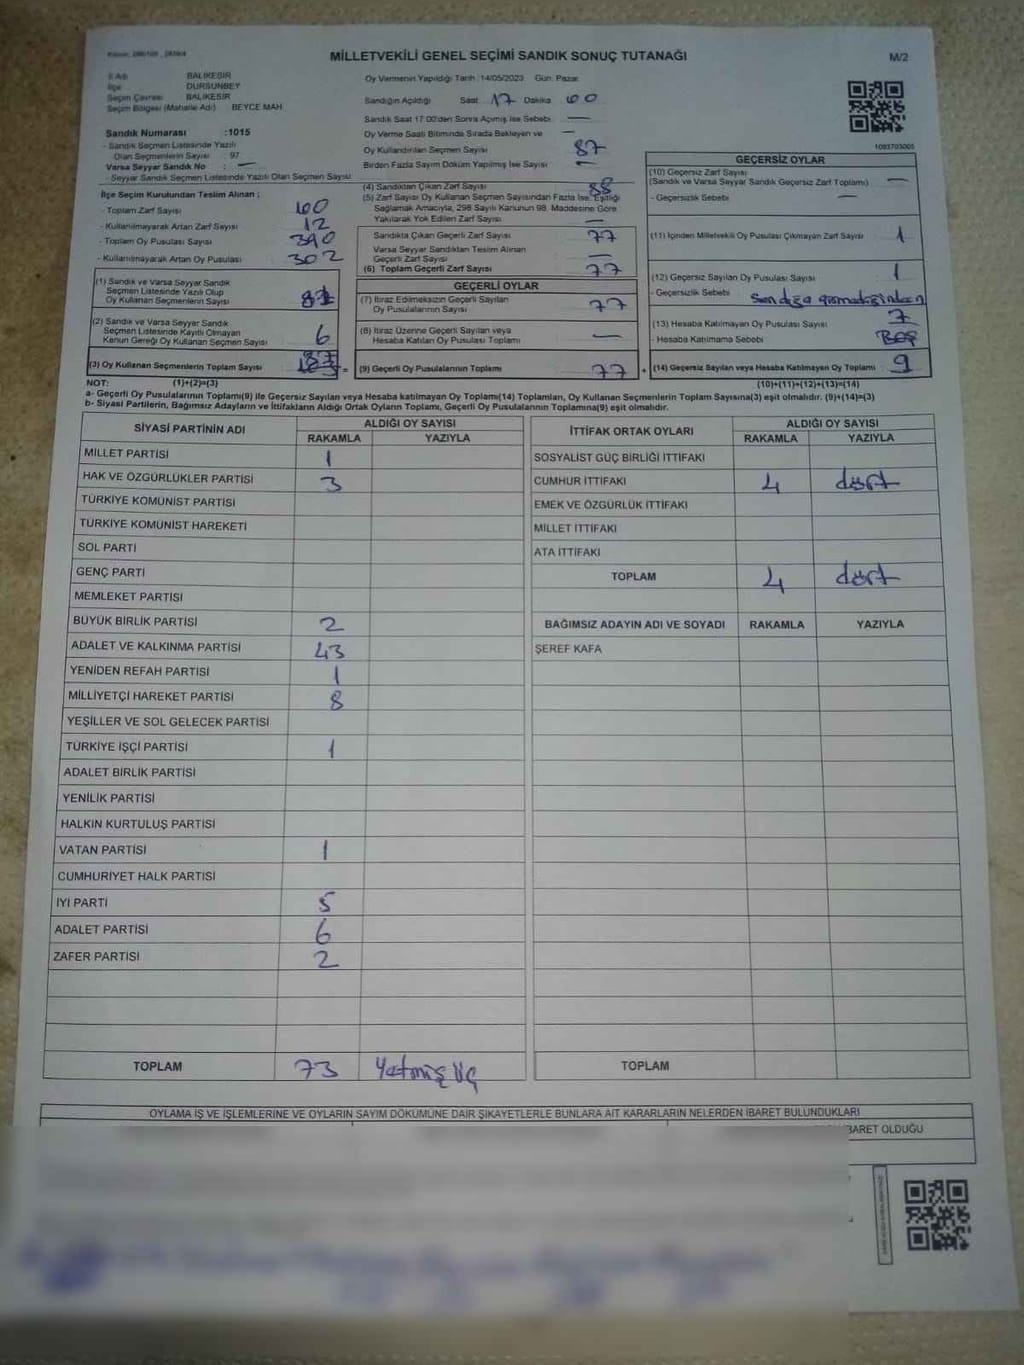 MİLLETVEKİLİ GENEL SEÇİMİ SANDIK SONUÇ TUTANAĞI
M/2
İl Adı BALIKESİR
İlçe DURSUNBEY
Seçim Çevresi BALIKESİR
Seçim Bölgesi (Mahalle Adı) BEYCE MAH
Sandık Numarası :1015
- Sandık Seçmen Listesinde Yazılı
Olan Seçmenlerin Sayısı : 97
Varsa Seyyar Sandık No : —
- Seyyar Sandık Seçmen Listesinde Yazılı Olan Seçmen Sayısı
İlçe Seçim Kurulundan Teslim Alınan :
- Toplam Zarf Sayısı 100
- Kullanılmayarak Artan Zarf Sayısı 12
- Toplam Oy Pusulası Sayısı 390
- Kullanılmayarak Artan Oy Pusulası 302
(1) Sandık ve Varsa Seyyar Sandık
Seçmen Listesinde Yazılı Olup
Oy Kullanan Seçmenlerin Sayısı
(2) Sandık ve Varsa Seyyar Sandık
Seçmen Listesinde Kayıtlı Olmayan
Kanun Gereği Oy Kullanan Seçmen Sayısı 6
(3) Oy Kullanan Seçmenlerin Toplam Sayısı =
Oy Vermenin Yapıldığı Tarih :14/05/2023 Gün: Pazar
Sandığın Açıldığı Saat 17 Dakika 00
Sandık Saat 17:00'den Sonra Açımış İse Sebebi : —
Oy Verme Saati Bitiminde Sırada Bekleyen ve —
Oy Kullandırılan Seçmen Sayısı 87
Birden Fazla Sayım Döküm Yapılmış İse Sayısı —
(4) Sandıktan Çıkan Zarf Sayısı 88
(5) Zarf Sayısı Oy Kullanan Seçmen Sayısından Fazla İse, Eşitliği
Sağlamak Amacıyla, 298 Sayılı Kanunun 98. Maddesine Göre
Yakılarak Yok Edilen Zarf Sayısı —
Sandıkta Çıkan Geçerli Zarf Sayısı 77
Varsa Seyyar Sandıktan Teslim Alınan
Geçerli Zarf Sayısı —
(6) Toplam Geçerli Zarf Sayısı 77
GEÇERLİ OYLAR
(7) İtiraz Edilmeksizin Geçerli Sayılan
Oy Pusulalarının Sayısı 77
(8) İtiraz Üzerine Geçerli Sayılan veya
Hesaba Katılan Oy Pusulası Toplamı —
(9) Geçerli Oy Pusulalarının Toplamı 77 +
1093703005
GEÇERSİZ OYLAR
(10) Geçersiz Zarf Sayısı
(Sandık ve Varsa Seyyar Sandık Geçersiz Zarf Toplamı) —
- Geçersizlik Sebebi —
(11) İçinden Milletvekili Oy Pusulası Çıkmayan Zarf Sayısı 1
(12) Geçersiz Sayılan Oy Pusulası Sayısı 1
- Geçersizlik Sebebi
(13) Hesaba Katılmayan Oy Pusulası Sayısı 7
- Hesaba Katılmama Sebebi Boş
(14) Geçersiz Sayılan veya Hesaba Katılmayan Oy Toplamı 9
NOT: (1)+(2)=(3) (10)+(11)+(12)+(13)=(14)
a- Geçerli Oy Pusulalarının Toplamı(9) ile Geçersiz Sayılan veya Hesaba Katılmayan Oy Toplamı(14) Toplamları, Oy Kullanan Seçmenlerin Toplam Sayısına(3) eşit olmalıdır. (9)+(14)=(3)
b- Siyasi Partilerin, Bağımsız Adayların ve İttifakların Aldığı Ortak Oyların Toplamı, Geçerli Oy Pusulalarının Toplamına(9) eşit olmalıdır.
SİYASİ PARTİNİN ADI ALDIĞI OY SAYISI
RAKAMLA YAZIYLA
MİLLET PARTİSİ 1
HAK VE ÖZGÜRLÜKLER PARTİSİ 3
TÜRKİYE KOMÜNİST PARTİSİ
TÜRKİYE KOMÜNİST HAREKETİ
SOL PARTİ
GENÇ PARTİ
MEMLEKET PARTİSİ
BÜYÜK BİRLİK PARTİSİ 2
ADALET VE KALKINMA PARTİSİ 43
YENİDEN REFAH PARTİSİ 1
MİLLİYETÇİ HAREKET PARTİSİ 8
YEŞİLLER VE SOL GELECEK PARTİSİ
TÜRKİYE İŞÇİ PARTİSİ 1
ADALET BİRLİK PARTİSİ
YENİLİK PARTİSİ
HALKIN KURTULUŞ PARTİSİ
VATAN PARTİSİ 1
CUMHURİYET HALK PARTİSİ
İYİ PARTİ 5
ADALET PARTİSİ 6
ZAFER PARTİSİ 2
TOPLAM 73 Yetmiş üç
İTTİFAK ORTAK OYLARI ALDIĞI OY SAYISI
RAKAMLA YAZIYLA
SOSYALİST GÜÇ BİRLİĞİ İTTİFAKI
CUMHUR İTTİFAKI 4 dört
EMEK VE ÖZGÜRLÜK İTTİFAKI
MİLLET İTTİFAKI
ATA İTTİFAKI
TOPLAM 4 dört
BAĞIMSIZ ADAYIN ADI VE SOYADI RAKAMLA YAZIYLA
ŞEREF KAFA
TOPLAM
OYLAMA İŞ VE İŞLEMLERİNE VE OYLARIN SAYIM DÖKÜMÜNE DAİR ŞİKAYETLERLE BUNLARA AİT KARARLARIN NELERDEN İBARET BULUNDUKLARI
BARET OLDUĞU